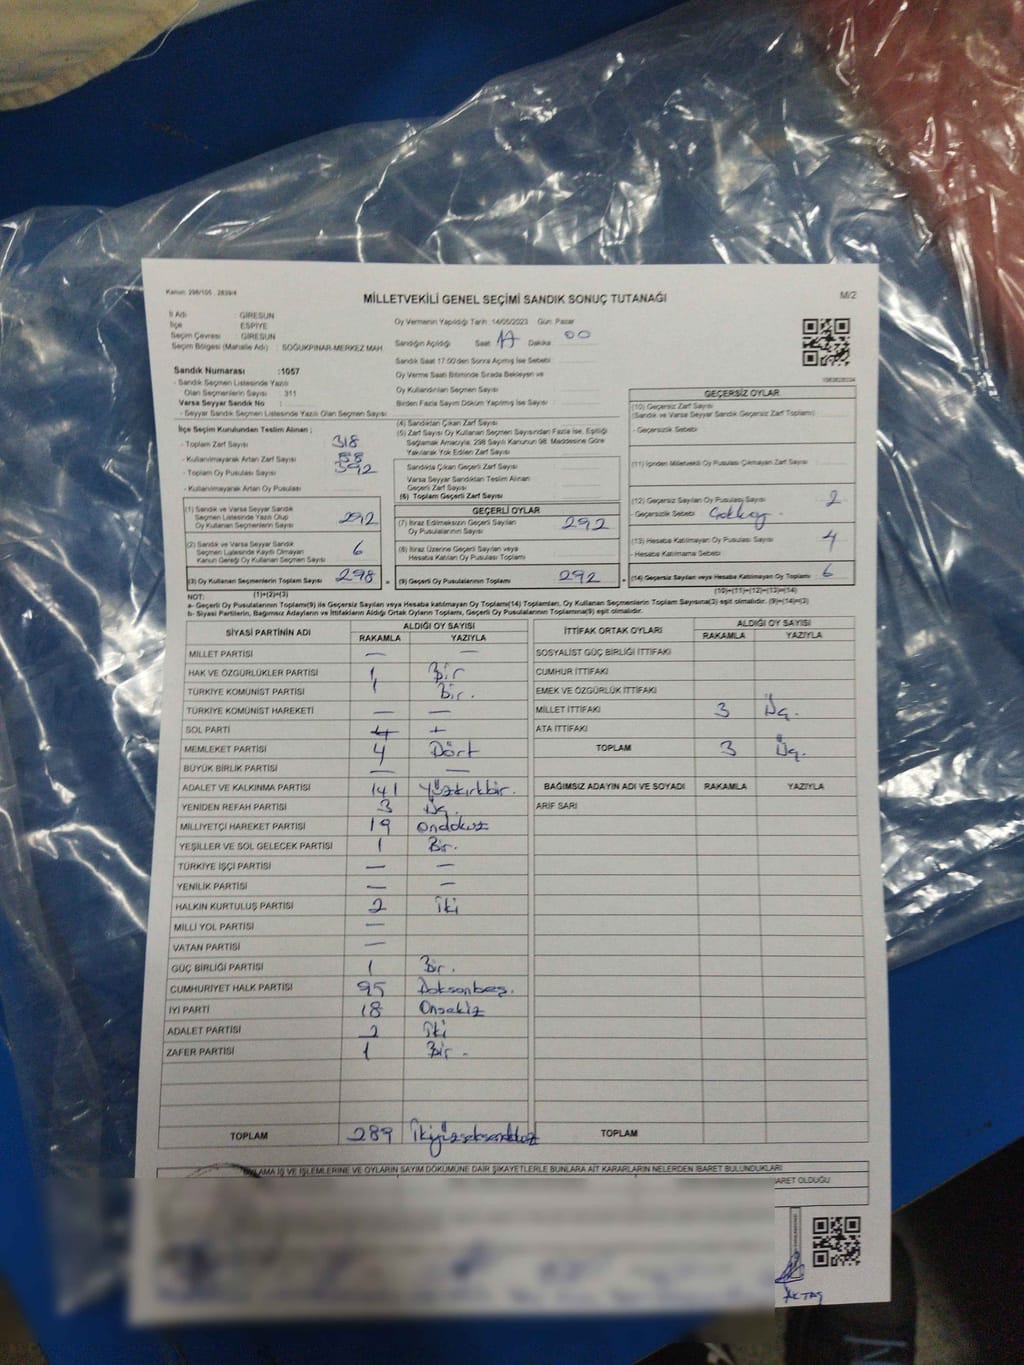 Kanun: 298/105 . 2839/4
MİLLETVEKİLİ GENEL SEÇİMİ SANDIK SONUÇ TUTANAĞI
M/2
İl Adı GİRESUN
İlçe ESPİYE
Seçim Çevresi : GİRESUN
Seçim Bölgesi (Mahalle Adı) : SOĞUKPINAR-MERKEZ MAH
Sandık Numarası :1057
- Sandık Seçmen Listesinde Yazılı
Olan Seçmenlerin Sayısı : 311
Varsa Seyyar Sandık No :
- Seyyar Sandık Seçmen Listesinde Yazılı Olan Seçmen Sayısı
Oy Vermenin Yapıldığı Tarih :14/05/2023 Gün: Pazar
Sandığın Açıldığı Saat 17 Dakika 00
Sandık Saat 17:00'den Sonra Açılmış İse Sebebi
Oy Verme Saati Bitiminde Sırada Bekleyen ve
Oy Kullandırılan Seçmen Sayısı
Birden Fazla Sayım Döküm Yapılmış İse Sayısı
İlçe Seçim Kurulundan Teslim Alınan ;
- Toplam Zarf Sayısı 318
- Kullanılmayarak Artan Zarf Sayısı 58
- Toplam Oy Pusulası Sayısı 392
- Kullanılmayarak Artan Oy Pusulası
(1) Sandık ve Varsa Seyyar Sandık
Seçmen Listesinde Yazılı Olup
Oy Kullanan Seçmenlerin Sayısı 292
(2) Sandık ve Varsa Seyyar Sandık
Seçmen Listesinde Kayıtlı Olmayan
Kanun Gereği Oy Kullanan Seçmen Sayısı 6
(3) Oy Kullanan Seçmenlerin Toplam Sayısı 298
(1)+(2)=(3)
(4) Sandıktan Çıkan Zarf Sayısı
(5) Zarf Sayısı Oy Kullanan Seçmen Sayısından Fazla İse, Eşitliği
Sağlamak Amacıyla, 298 Sayılı Kanunun 98. Maddesine Göre
Yakılarak Yok Edilen Zarf Sayısı
Sandıkta Çıkan Geçerli Zarf Sayısı
Varsa Seyyar Sandıktan Teslim Alınan
Geçerli Zarf Sayısı
(6) Toplam Geçerli Zarf Sayısı
GEÇERLİ OYLAR
(7) İtiraz Edilmeksizin Geçerli Sayılan
Oy Pusulalarının Sayısı 292
(8) İtiraz Üzerine Geçerli Sayılan veya
Hesaba Katılan Oy Pusulaları Toplamı
(9) Geçerli Oy Pusulalarının Toplamı 292
GEÇERSİZ OYLAR
(10) Geçersiz Zarf Sayısı
(Sandık ve Varsa Seyyar Sandık Geçersiz Zarf Toplamı)
- Geçersizlik Sebebi
(11) İçinden Milletvekili Oy Pusulası Çıkmayan Zarf Sayısı
(12) Geçersiz Sayılan Oy Pusulası Sayısı 2
- Geçersizlik Sebebi
(13) Hesaba Katılmayan Oy Pusulası Sayısı 4
- Hesaba Katılmama Sebebi
(14) Geçersiz Sayılan veya Hesaba Katılmayan Oy Toplamı 6
(10)+(11)+(12)+(13)=(14)
NOT:
a- Geçerli Oy Pusulalarının Toplamı(9) ile Geçersiz Sayılan veya Hesaba katılmayan Oy Toplamı(14) Toplamları, Oy Kullanan Seçmenlerin Toplam Sayısına(3) eşit olmalıdır. (9)+(14)=(3)
b- Siyasi Partilerin, Bağımsız Adayların ve İttifakların Aldığı Ortak Oyların Toplamı, Geçerli Oy Pusulalarının Toplamına(9) eşit olmalıdır.
SİYASİ PARTİNİN ADI ALDIĞI OY SAYISI
RAKAMLA YAZIYLA
MİLLET PARTİSİ — —
HAK VE ÖZGÜRLÜKLER PARTİSİ 1 Bir
TÜRKİYE KOMÜNİST PARTİSİ 1 Bir.
TÜRKİYE KOMÜNİST HAREKETİ — —
SOL PARTİ
MEMLEKET PARTİSİ 4 Dört
BÜYÜK BİRLİK PARTİSİ — —
ADALET VE KALKINMA PARTİSİ 141 Yüzkırkbir.
YENİDEN REFAH PARTİSİ 3 Üç.
MİLLİYETÇİ HAREKET PARTİSİ 19 Ondokuz
YEŞİLLER VE SOL GELECEK PARTİSİ 1 Bir.
TÜRKİYE İŞÇİ PARTİSİ — —
YENİLİK PARTİSİ — —
HALKIN KURTULUŞ PARTİSİ 2 İki
MİLLİ YOL PARTİSİ —
VATAN PARTİSİ —
GÜÇ BİRLİĞİ PARTİSİ 1 Bir.
CUMHURİYET HALK PARTİSİ 95 Doksanbeş.
İYİ PARTİ 18 Onsekiz
ADALET PARTİSİ 2 İki
ZAFER PARTİSİ 1 Bir.
TOPLAM 289 İkiyüzseksendokuz
İTTİFAK ORTAK OYLARI ALDIĞI OY SAYISI
RAKAMLA YAZIYLA
SOSYALİST GÜÇ BİRLİĞİ İTTİFAKI
CUMHUR İTTİFAKI
EMEK VE ÖZGÜRLÜK İTTİFAKI
MİLLET İTTİFAKI 3 Üç.
ATA İTTİFAKI
TOPLAM 3 Üç.
BAĞIMSIZ ADAYIN ADI VE SOYADI RAKAMLA YAZIYLA
ARİF SARI
TOPLAM
OYLAMA İŞ VE İŞLEMLERİNE VE OYLARIN SAYIM DÖKÜMÜNE DAİR ŞİKAYETLERLE BUNLARA AİT KARARLARIN NELERDEN İBARET BULUNDUKLARI
BARET OLDUĞU
AKTAŞ